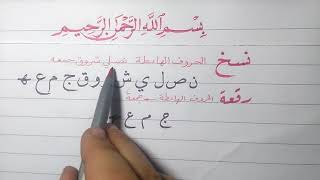 بِسْمِ اللَّهِ الرَّحْمَنِ الرَّحِيمِ
نسخ الحروف الهابطة
ن ص ل ي ش ر و ق ج م ع ه
رقعة الحروف الهابطة جمعه
ج م ع